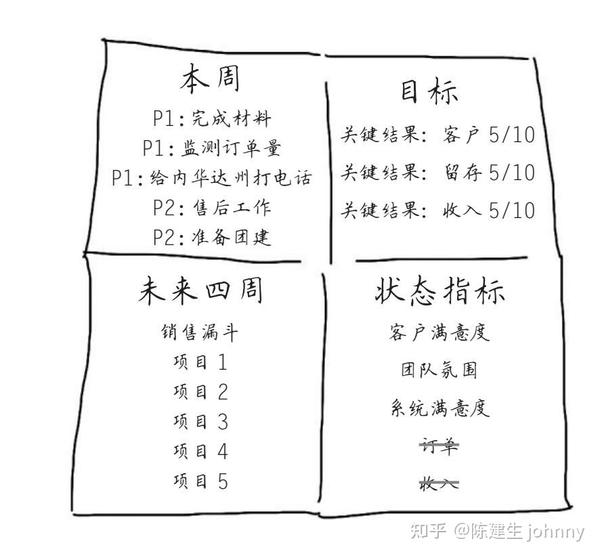 本周
P1:完成材料
P1:监测订单量
P1:给内华达州打电话
P2:售后工作
P2:准备团建
目标
关键结果: 客户 5/10
关键结果: 留存 5/10
关键结果: 收入 5/10
未来四周
销售漏斗
项目 1
项目 2
项目 3
项目 4
项目 5
状态指标
客户满意度
团队氛围
系统满意度
订单
收入
知乎 @陈建生 johnny